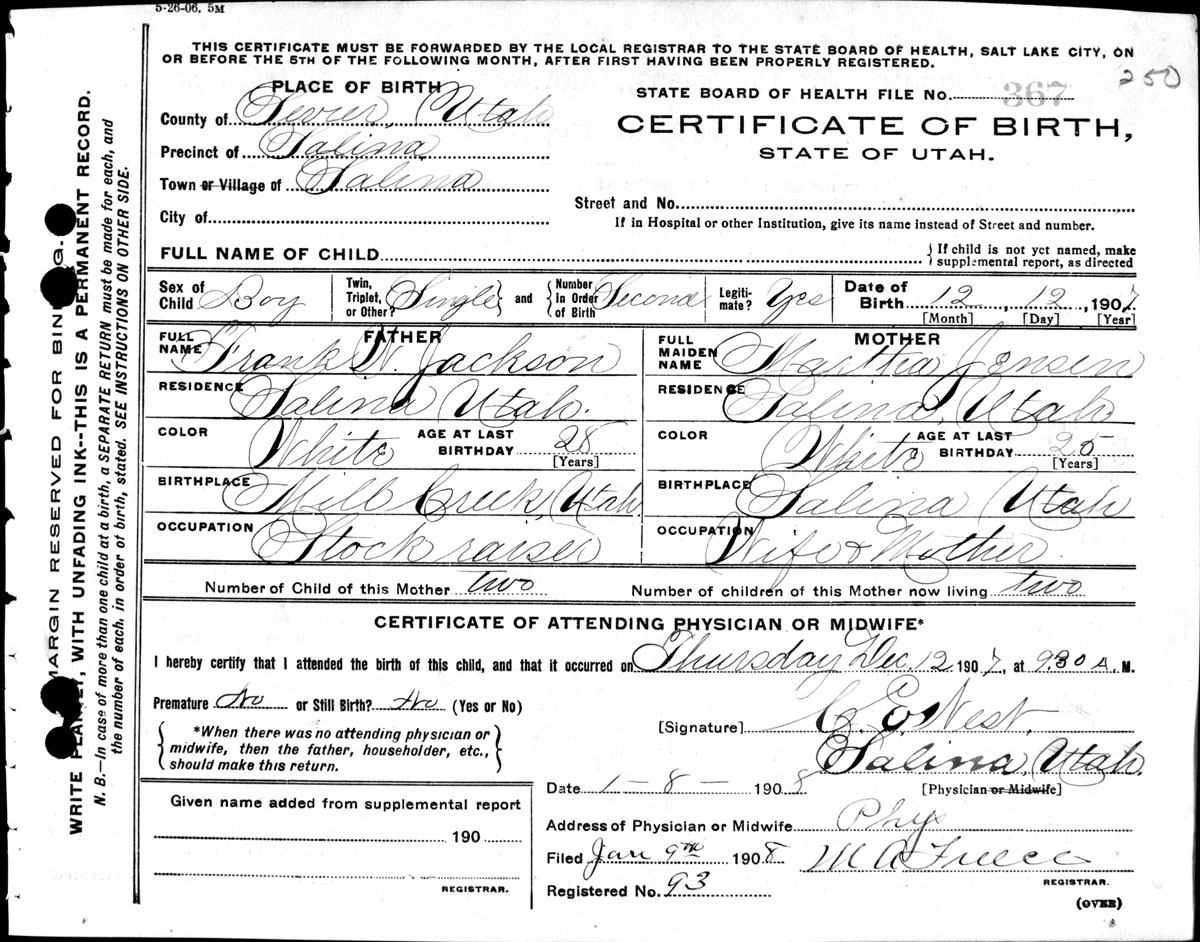 5-26-06. 5M
THIS CERTIFICATE MUST BE FORWARDED BY THE LOCAL REGISTRAR TO THE STATE BOARD OF HEALTH, SALT LAKE CITY, ON
OR BEFORE THE 5TH OF THE FOLLOWING MONTH, AFTER FIRST HAVING BEEN PROPERLY REGISTERED.
250
PLACE OF BIRTH
STATE BOARD OF HEALTH FILE No. 367
County of Sevier, Utah
CERTIFICATE OF BIRTH,
Precinct of Salina
STATE OF UTAH.
Town or Village of Salina
Street and No.
City of
If in Hospital or other Institution, give its name instead of Street and number.
FULL NAME OF CHILD
{ If child is not yet named, make
supplemental report, as directed
Sex of Child Boy Twin, Triplet, or Other? Single } and { Number in Order of Birth Second Legiti-mate? Yes Date of Birth 12, 12, 1907
[Month] [Day] [Year]
FATHER
MOTHER
FULL NAME Frank N. Jackson
FULL MAIDEN NAME Martha Jensen
RESIDENCE Salina Utah.
RESIDENCE Salina, Utah.
COLOR White AGE AT LAST BIRTHDAY 28 [Years]
COLOR White AGE AT LAST BIRTHDAY 25 [Years]
BIRTHPLACE Mill Creek, Utah
BIRTHPLACE Salina Utah
OCCUPATION Stock raiser
OCCUPATION Wife & Mother
Number of Child of this Mother two
Number of children of this Mother now living two
CERTIFICATE OF ATTENDING PHYSICIAN OR MIDWIFE*
I hereby certify that I attended the birth of this child, and that it occurred on Thursday Dec. 12 1907, at 930 A. M.
Premature No or Still Birth? No (Yes or No)
[Signature] E. West,
Salina, Utah.
[Physician or Midwife]
{ *When there was no attending physician or
midwife, then the father, householder, etc.,
should make this return. }
Date 1-8-1908
Address of Physician or Midwife Phys
Filed Jan 9th 1908
REGISTRAR.
Registered No. 93
(OVER)
Given name added from supplemental report
190
REGISTRAR.
MARGIN RESERVED FOR BINDING.
WRITE PLAINLY, WITH UNFADING INK--THIS IS A PERMANENT RECORD.
N. B.—In case of more than one child at a birth, a SEPARATE RETURN must be made for each, and
the number of each, in order of birth, stated. SEE INSTRUCTIONS ON OTHER SIDE.